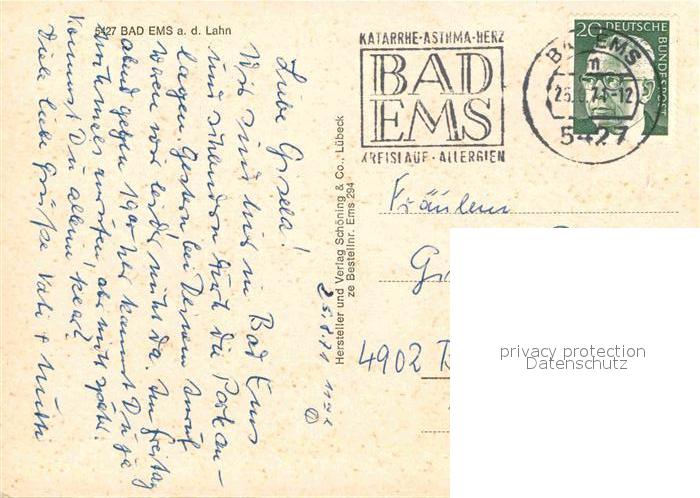 5427 BAD EMS a. d. Lahn
Liebe Gisela!
Wir sind hier in Bad Ems
und schlendern durch die Parkan-
lagen. Gestern bei Deinem Anruf
waren wir leider nicht da. Am Freitag
abend gegen 19 Uhr kannst Du ja
nochmals anrufen, aber nicht später.
Kommst Du allein klar?
Viele liebe Grüße Vati + Mutti
25.8.71
Hersteller und Verlag Schöning & Co., Lübeck
ze Bestellnr. Ems 294
KATARRHE·ASTHMA·HERZ
BAD
EMS
KREISLAUF·ALLERGIEN
BAD EMS
n
71-12
5427
20 DEUTSCHE
BUNDESPOST
Fräulein
4902
privacy protection
Datenschutz